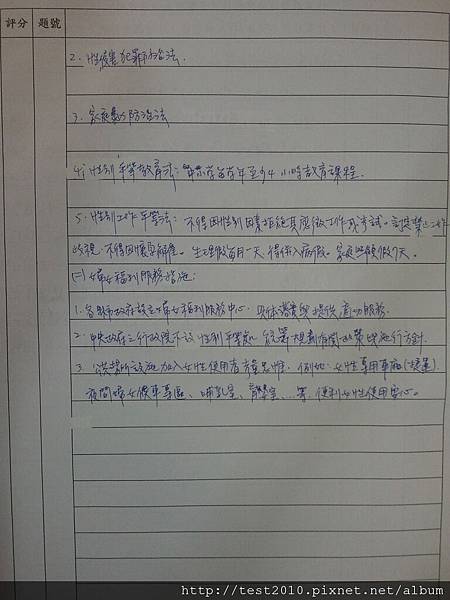 評分 題號
2. 性侵害犯罪防治法.
3. 家庭暴力防治法
4. 性別平等教育法: 學年至少4小時教育課程.
5. 性別工作平等法: 不得因性別因素拒絕其應徵工作或考試。禁止工作
歧視. 不得因懷孕解雇。生理假每月一天, 得併入病假。家庭照顧假7天。
(二) 婦女福利服務措施:
1. 各縣市政府設立婦女福利服務中心, 提供諮商服務.
2. 中央政府之行政院下設性別平等處, 統籌規劃有關政策與施行方針.
3. 公共場所設施加入女性使用者考量思惟. 例如: 女性專用車廂(捷運)
夜間婦女候車專區、哺乳室、等, 便利女性使用安心。
http://test2010.pixnet.net/album